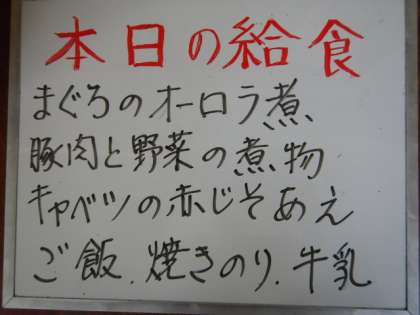 本日の給食
まぐろのオーロラ煮
豚肉と野菜の煮物
キャベツの赤じそあえ
ご飯.焼きのり.牛乳